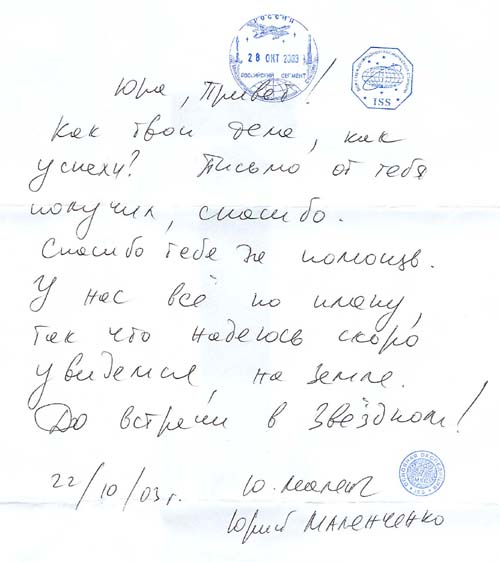 РОССИЯ
28 ОКТ 2003
РОССИЙСКИЙ СЕГМЕНТ
ISS
Юра, Привет!
Как твои дела, как
успехи? Письмо от тебя
получил, спасибо.
Спасибо тебе за помощь.
У нас всё по плану,
так что надеюсь скоро
увидемся, на Земле.
До встречи в Звёздном!
22/10/03г.
Ю. Мален
Юрий МАЛЕНЧЕНКО